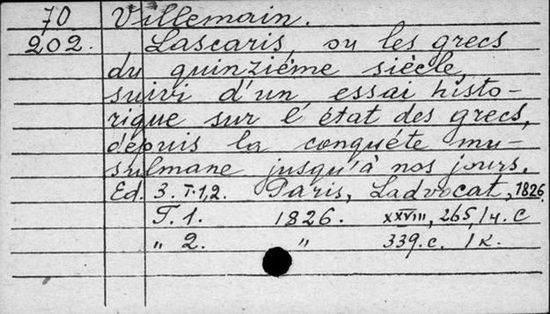 70 Villemain.
202. Lascaris, ou les grecs
du quinzième siècle,
suivi d'un essai histo-
rique sur l'état des grecs,
depuis la conquéte mu-
sulmane jusqu'à nos jours.
Ed. 3. T. 1,2. Paris, Ladvocat, 1826.
T. 1. 1826. XXVIII, 265, /4. c
„ 2. „ 339. c. /к.